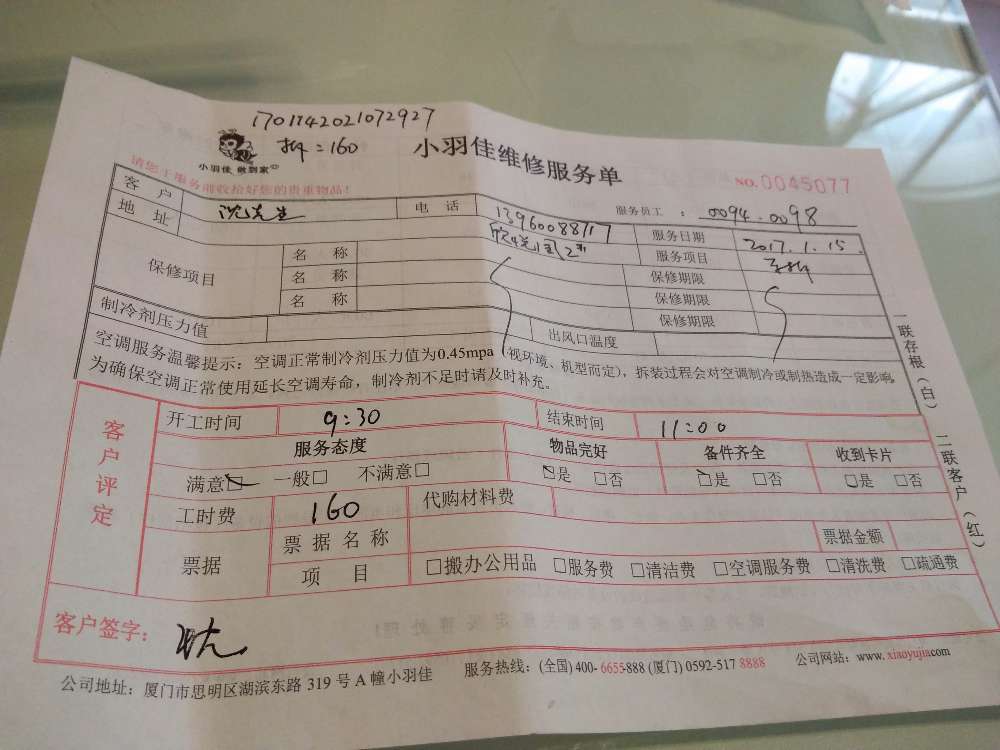 1701142021072927
拆=160
小羽佳维修服务单
小羽佳 做到家
NO.0045077
请您于服务前收拾好您的贵重物品!
服务员工 : 0094.0098
客户 沈先生 电话 13960088717 服务日期 2017.1.15.
地址 服务项目
保修项目 名称 保修期限
名称 保修期限
名称 保修期限
制冷剂压力值 出风口温度
空调服务温馨提示:空调正常制冷剂压力值为0.45mpa(视环境、机型而定),拆装过程会对空调制冷或制热造成一定影响,
为确保空调正常使用延长空调寿命,制冷剂不足时请及时补充。
一联存根(白) 二联客户(红)
客户评定
开工时间 9:30 结束时间 11:00
服务态度 物品完好 备件齐全 收到卡片
满意☑ 一般□ 不满意□ ☑是 □否 ☑是 □否 □是 □否
工时费 160 代购材料费
票据 票据名称 票据金额
项目 □搬办公用品 □服务费 □清洁费 □空调服务费 □清洗费 □疏通费
客户签字: 沈
公司地址:厦门市思明区湖滨东路 319 号 A 幢小羽佳 服务热线:(全国) 400- 6655-888 (厦门) 0592-517 8888 公司网站:www.xiaoyujia.com